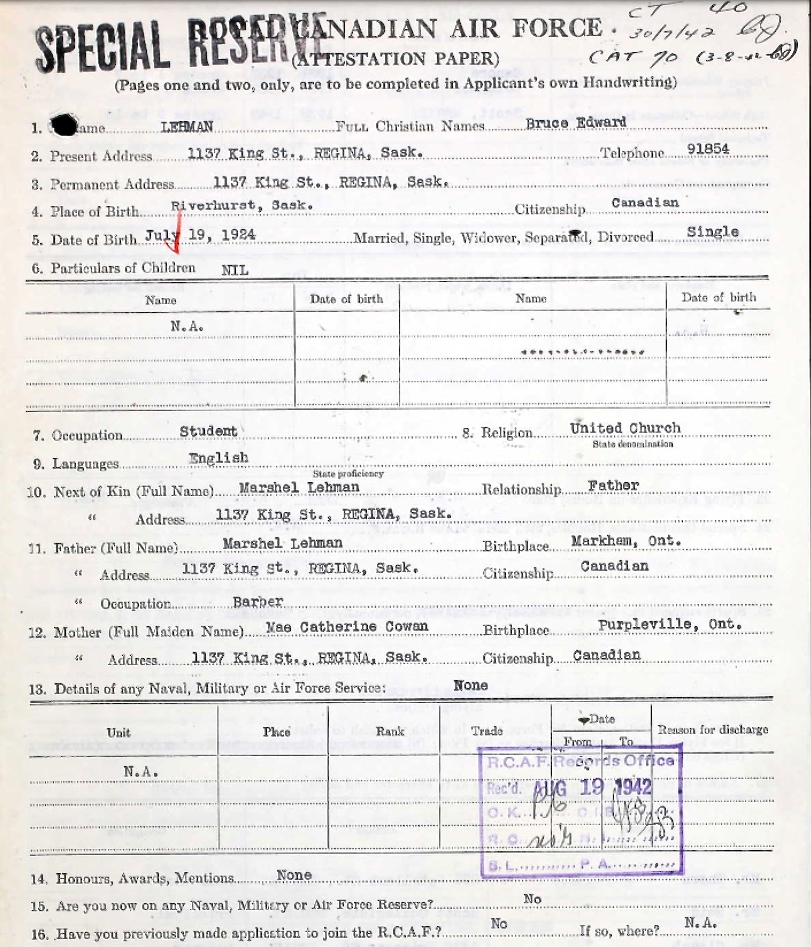 SPECIAL RESERVE
CANADIAN AIR FORCE.
(ATTESTATION PAPER)
CT 40
30/7/42
CAT 70 (3-8-42
(Pages one and two, only, are to be completed in Applicant's own Handwriting)
1. ame LEHMAN Full Christian Names Bruce Edward
2. Present Address 1137 King St., REGINA, Sask. Telephone 91854
3. Permanent Address 1137 King St., REGINA, Sask.
4. Place of Birth Riverhurst, Sask. Citizenship Canadian
5. Date of Birth July 19, 1924 Married, Single, Widower, Separated, Divorced Single
6. Particulars of Children NIL
Name Date of birth Name Date of birth
N.A.
7. Occupation Student 8. Religion United Church
State denomination
9. Languages English
State proficiency
10. Next of Kin (Full Name) Marshel Lehman Relationship Father
" Address 1137 King St., REGINA, Sask.
11. Father (Full Name) Marshel Lehman Birthplace Markham, Ont.
" Address 1137 King St., REGINA, Sask. Citizenship Canadian
" Occupation Barber
12. Mother (Full Maiden Name) Mae Catherine Cowan Birthplace Purpleville, Ont.
" Address 1137 King St., REGINA, Sask. Citizenship Canadian
13. Details of any Naval, Military or Air Force Service: None
Unit Place Rank Trade Date Reason for discharge
From To
N.A.
R.C.A.F. Records Office
Rec'd. AUG 19 1942
O.K.
R.O.
S.L. P.A.
14. Honours, Awards, Mentions None
15. Are you now on any Naval, Military or Air Force Reserve? No
16. Have you previously made application to join the R.C.A.F.? No If so, where? N.A.